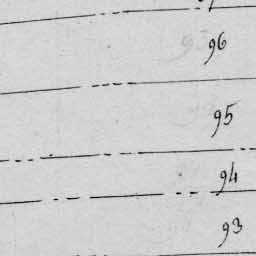 96
95
94
93